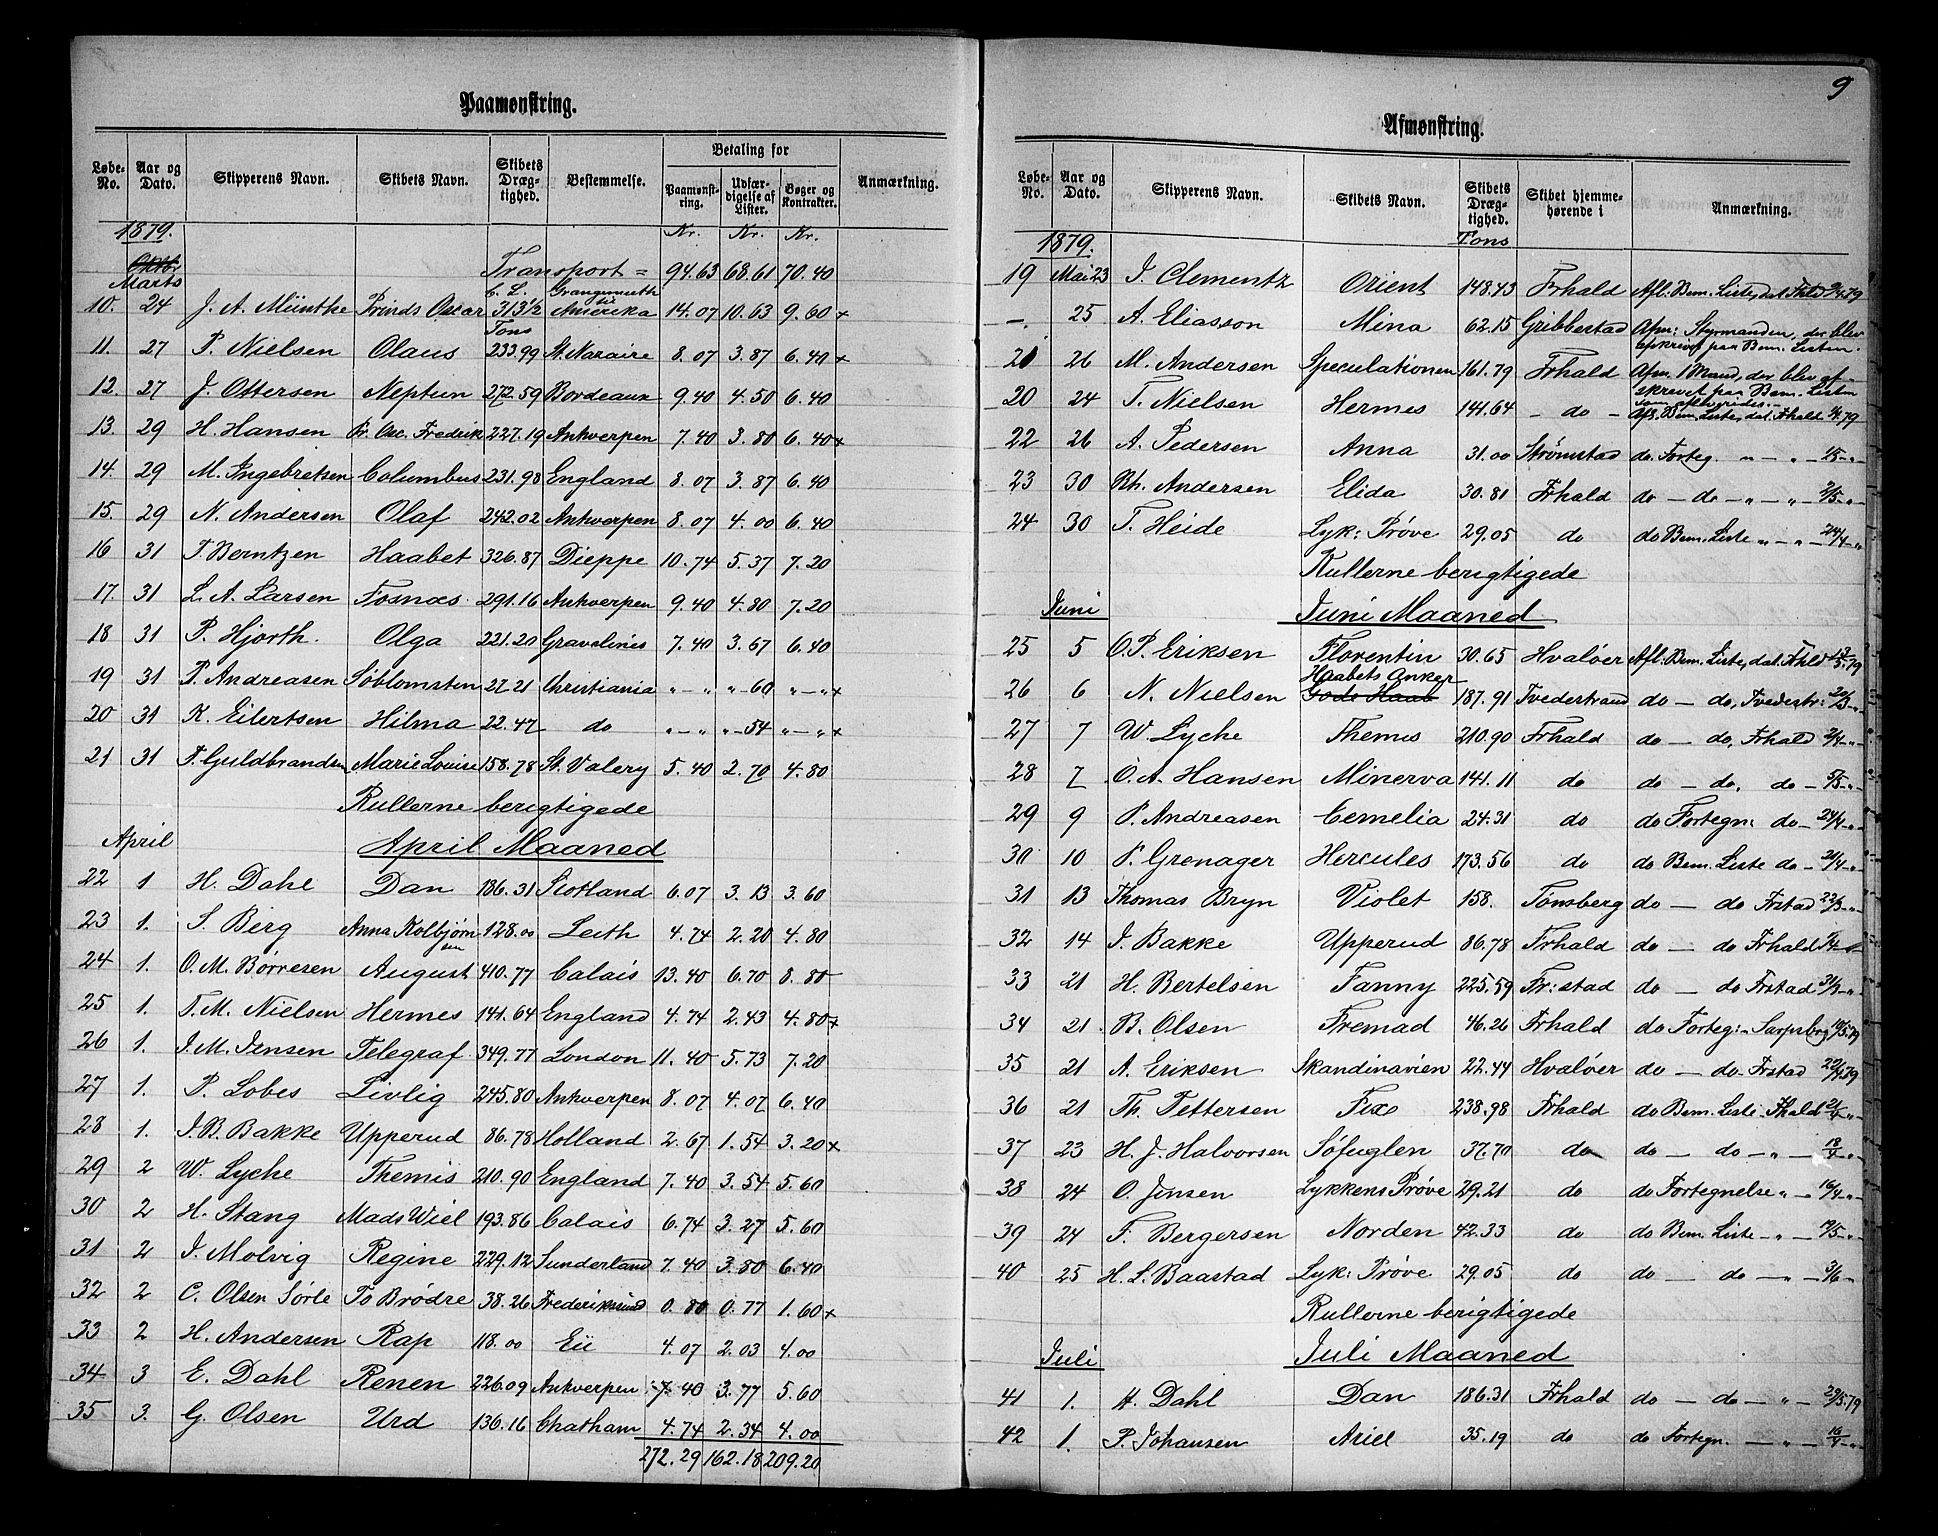 Paamønstring.
Løbe-No. Aar og Dato. Skipperens Navn. Skibets Navn. Skibets Dræg-tighed. Bestemmelse. Betaling for Paamønst-ring. Udfær-digelse af Lister. Bøger og Kontrakter. Anmærkning.
1879. Kr. Kr. Kr.
Oktbr Transport = 94.63 68.61 70.40
Marts C. L.
10. 24 J. A. Müntke Prinds Oscar 313½ Amerika 14.07 10.63 9.60 +
Tons
11. 27 P. Nielsen Olaus 233.99 St. Nazaire 8.07 3.87 6.40 +
12. 27 J. Ottersen Neptun 272.59 Bordeaux 9.40 4.50 6.40
13. 29 H. Hansen Pr. Osc. Fredrik 227.19 Antverpen 7.40 3.80 6.40 +
14. 29 M. Ingebretsen Columbus 231.98 England 8.07 3.87 6.40
15. 29 N. Andersen Olaf 242.02 Antverpen 8.07 4.00 6.40
16 31 P. Berntzen Haabet 326.87 Dieppe 10.74 5.37 7.20
17. 31 L. A. Larsen Fosnæs 291.16 Antverpen 9.40 4.80 7.20
18 31 P. Hjorth. Olga 221.20 Gravelines 7.40 3.67 6.40
19 31 P. Andreasen Søblomsten 27.21 Christiania " — " " - 60 " — " +
20 31 K. Eilertsen Hilma 22.47 do " — " " - 54 " — " +
21 31 F. Guldbrandsen Marie Lovise 158.78 St. Valery 5.40 2.70 4.80
Rullerne berigtigede
April April Maaned
22 1 H. Dahl Dan 186.31 Scotland 6.07 3.13 3.60
23 1. S. Berg Anna Kolbjørnsen 128.00 Leith 4.74 2.20 4.80
24 1. O. M. Børresen August 410.77 Calais 13.40 6.70 8.80
25 1. T. M. Nielsen Hermes 141.64 England 4.74 2.43 4.80 +
26 1. J. M. Jensen Telegraf 349.77 London 11.40 5.73 7.20
27 1. P. Lobes Livlig 245.80 Antverpen 8.07 4.07 6.40
28 1. J. B. Bakke Upperud 86.78 Holland 2.67 1.54 3.20 +
29 2 W. Lyche Themis 210.90 England 7.40 3.54 5.60
30 2 H. Stang Mads Wiel 193.86 Calais 6.74 3.27 5.60
31 2 J. Molvig Regine 229.12 Sunderland 7.40 3.80 6.40
32 2 C. Olsen Sørle To Brødre 38.26 Frederikssund 0.80 0.77 1.60 +
33 2 H. Andersen Rap 118.00 Eü 4.07 2.03 4.00
34 3 E. Dahl Renen 226.09 Antverpen 7.40 3.77 5.60
35 3. G. Olsen Urd 136.16 Chatham 4.74 2.34 4.00
272.29 162.18 209.20
9
Afmønstring.
Løbe-No. Aar og Dato. Skipperens Navn. Skibets Navn. Skibets Dræg-tighed. Skibet hjemme-hørende i Anmærkning.
1879. Tons
19 Mai 23 J. Clementz Orient 148.43 Frhald Afl. Bem. Liste, dat. Fhld
— 25 A. Eliasson Mina 62.15 Gribbestad Afm: Styrmanden, der blev
afskrevet paa Bem. Listen.
21 26 M. Andersen Speculationen 161.79 Frhald Afm. 1 Mand, der blev af-
skrevet paa Bem. Listen
20 24 T. Nielsen Hermes 141.64 — do — Afl. Bem. Liste, dat. Fhald
22 26 A. Pedersen Anna 31.00 Strømstad do. Forteg. " — "
23 30 Rh. Andersen Elida 30.81 Frhald do — do — " — " 2/5 "
24 30 T. Heide Lyk: Prøve 29.05 do do Bem. Liste " — " 24/4 "
Rullerne berigtigede
Juni Juni Maaned
25 5 O. P. Eriksen Florentin 30.65 Hvaløer Afl. Bem. Liste, dat. Fhld
Haabets Anker
26 6 N. Nielsen Gode Haab 187.91 Tvedestrand do — do, Tvedestr:
27 7 W Lyche Themis 210.90 Frhald do — do, Frhald 2/4 "
28 7 O. A. Hansen Minerva 141.11 do do — do. do
29 9 P. Andreasen Cornelia 24.31 do do Fortegn: do — 24/4 "
30 10 P. Grenager Hercules 173.56 do do Bem. Liste do — 21/4 "
31 13 Thomas Bryn Violet 158. Tønsberg do — do Frstad 22/3 "
32 14 J. Bakke Upperud 86.78 Frhald do — do Frhald
33 21 H. Bertelsen Fanny 225.59 Fr:stad do — do Frstad 31/3 "
34 21. B. Olsen Fremad 46.26 Frhald do Forteg: Sarpsborg
35 21 A. Eriksen Skandinavien 22.44 Hvaløer do — do Frstad 22/4.79
36 21 Th. Tettersen Fix 238.98 Frhald do Bem. Liste Fhald
37 23 H. J. Halvorsen Søfuglen 37.70 do do — do — "
38 24 O. Jensen Lykkens Prøve 29.21 do do Fortegnelse " 16/4 "
39 24 F. Bergersen Norden 42.33 do do Bem. Liste — "
40 25 H. L. Baastad Lyk: Prøve 29.05 do do — do — " 3/6
Rullerne berigtigede
Juli Juli Maaned
41 1. H. Dahl Dan 186.31 Frhald do — do — " 23/5.79
42 1. P. Johansen Ariel 35.19 do do Fortegn. — " — 16/4 "